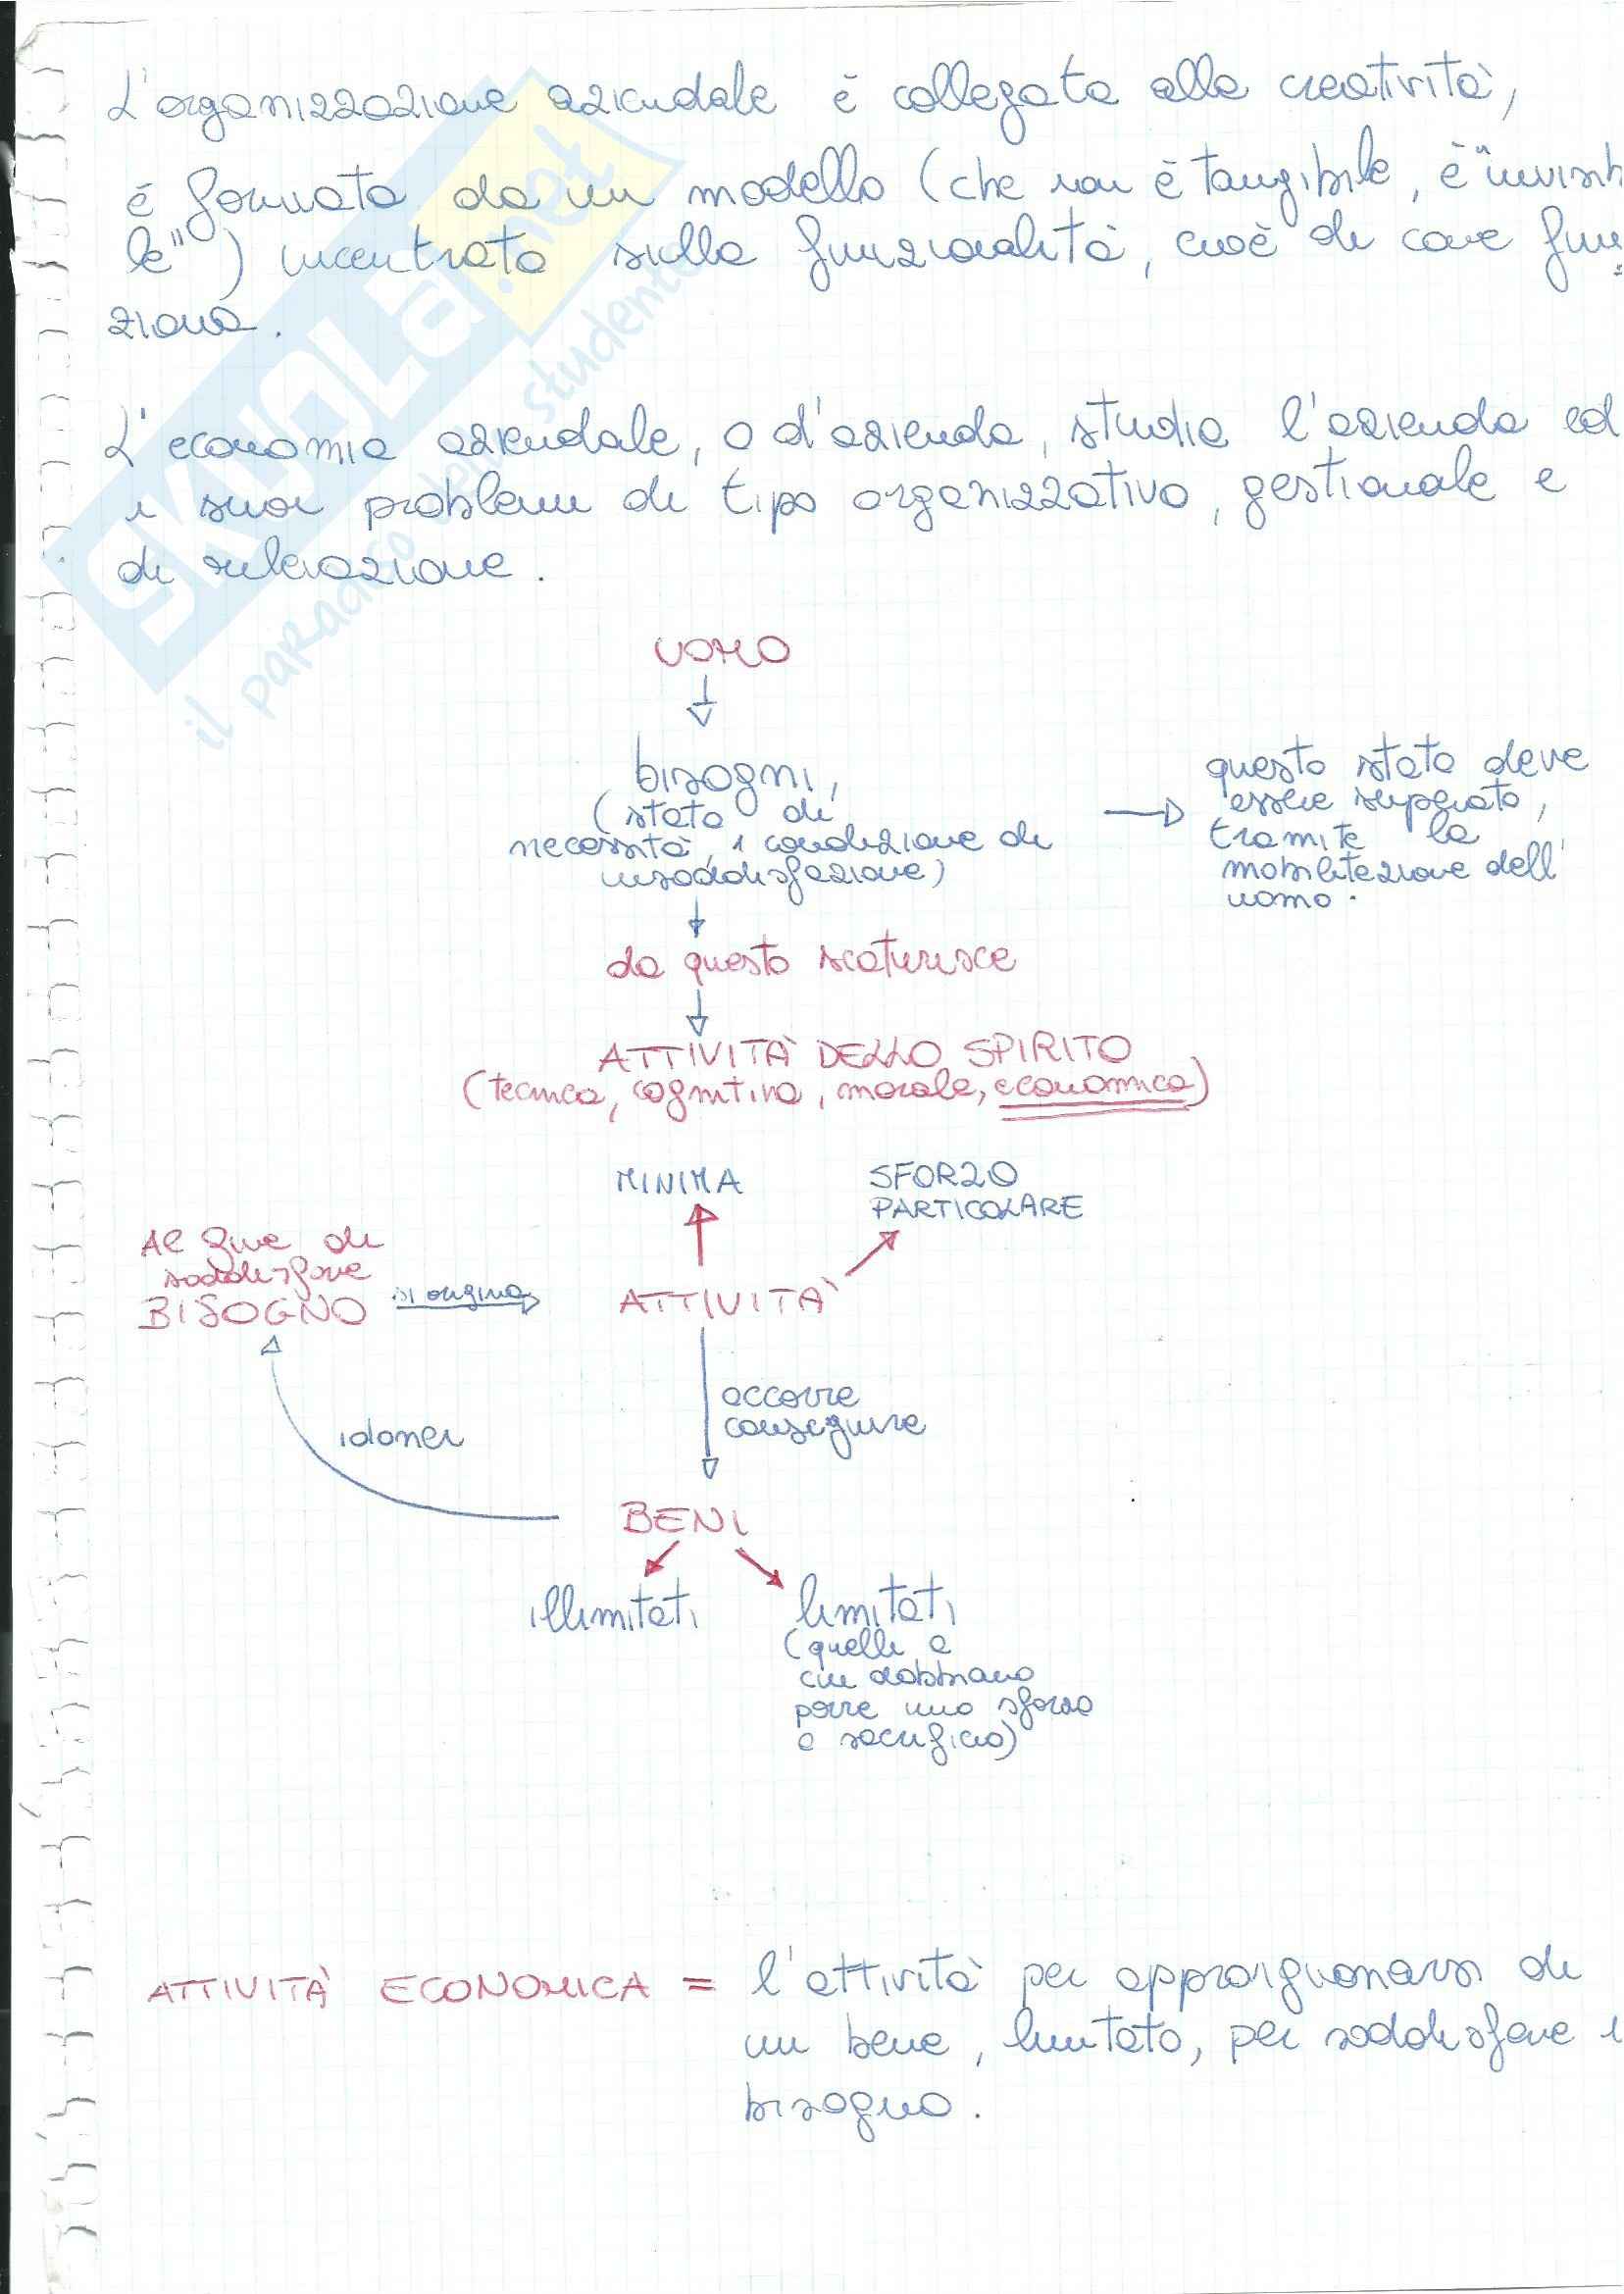 L'organizzazione aziendale è collegata alla creatività,
è formata da un modello (che non è tangibile, è "invisibi
le") incentrato sulla funzionalità, cioè di come fun
ziona.
L'economia aziendale, o d'azienda, studia l'azienda ed
i suoi problemi di tipo organizzativo, gestionale e
di rilevazione.
SKUOLA.net
il paradiso dello studente
UOMO
bisogni,
(stato di
necessità, condizione di
insoddisfazione)
questo stato deve
essere superato,
tramite la
mobilitazione dell'
uomo.
da questo scaturisce
ATTIVITÀ DELLO SPIRITO
(tecnica, cognitiva, morale, economica)
MINIMA
SFORZO
PARTICOLARE
Al fine di
soddisfare
BISOGNO
si origina
ATTIVITÀ
occorre
conseguire
idonei
BENI
illimitati
limitati
(quelli a
cui dobbiamo
porre uno sforzo
o sacrificio)
ATTIVITÀ ECONOMICA = l'attività per approvigionarsi di
un bene, limitato, per soddisfare i
bisogno.